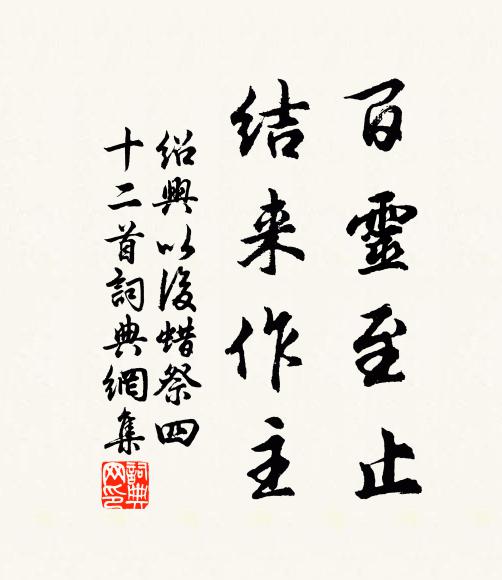 百靈至止
结来作主
绍興以後蜡祭四
十二首詞典網集
詞典
网印